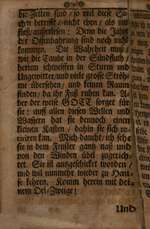 die Zeiten sind / so viel diese Sa-
chen betrifft / nicht eben / als uns
süß / aufzulesen: Denn die Zeiten
der Offenbahrung sind noch nicht
kommen. Die Wahrheit muß /
wie die Taube in der Sündfluth /
herum schweiffen in Sturm und
Ungewitter / und viele grosse Ströh-
me übersehen / und keinen Raum
finden / da ihr Fuß ruhen kan. A-
ber der weise GOTT sorget für
sie: auff allen diesen Wellen und
Wassern hat sie dennoch einen
kleinen Kasten / dahin sie sich re-
tiriren kan. Mich daucht / ich sehe
sie in dem Fenster ganz naß und
von den Winden durch jägerich-
tet. Sie ist ausgeschicket worden /
und will nunmehr wieder zu Hau-
se kehren. Komm herein mit dei-
nem Oel-Zweige!
Und